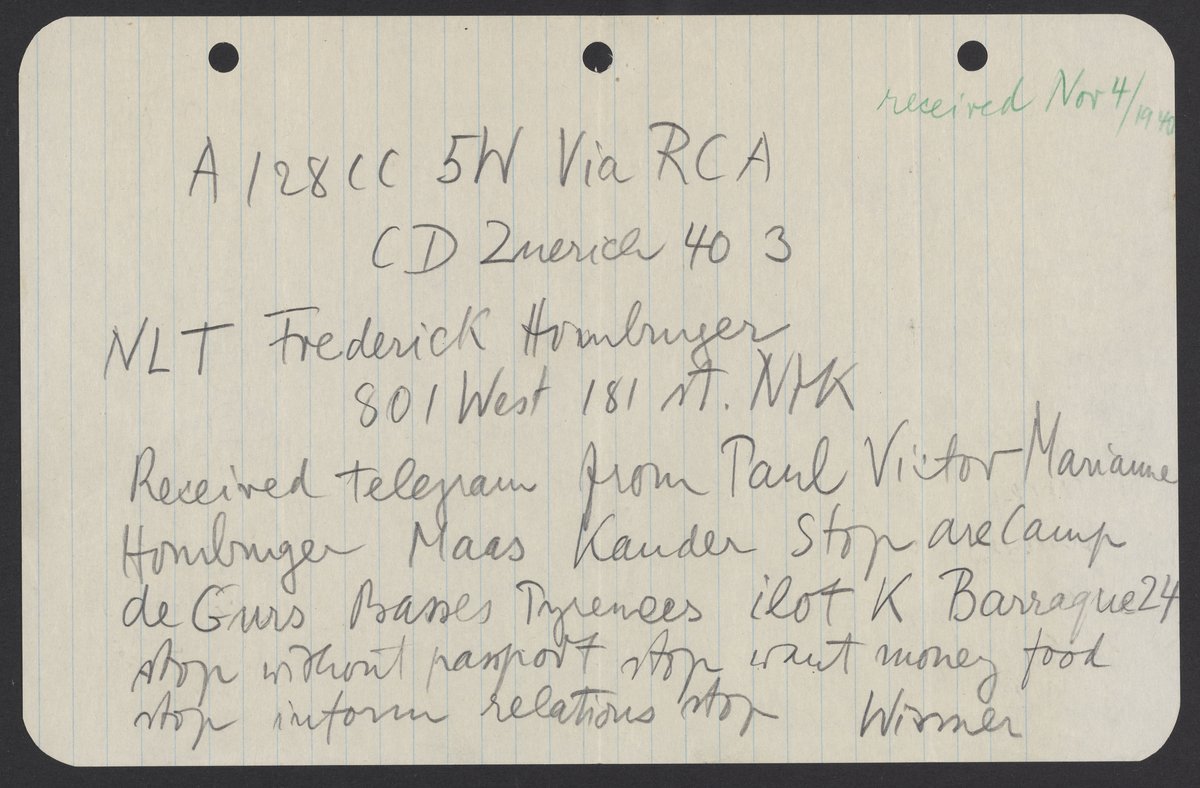 received Nov 4/1940
A 128 CC 5W Via RCA
CD Zuerich 40 3
NLT Frederick Homburger
801 West 181 st. NYK
Received telegram from Paul Victor Marianne
Homburger Maas Kander Stop are Camp
de Gurs Basses Pyrenees ilot K Barraque 24
stop without passport stop want money food
stop inform relations stop Wirmer